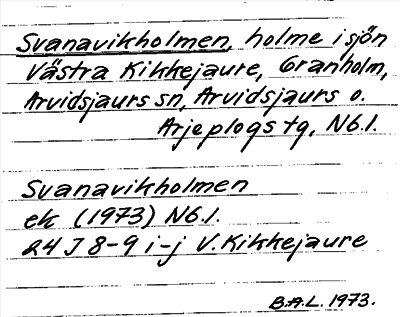 Svanavikholmen, holme i sjön
Västra Kikkejaure, Granholm,
Arvidsjaurs sn, Arvidsjaurs o.
Arjeplogs tg, Nb.l.
Svanavikholmen
ek (1973) Nb.l.
24 J 8-9 i-j V. Kikkejaure
B.A.L. 1973.